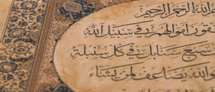 الله الرحمن الرحيم
ينفقون أموالهم في سبيل الله
سبع سنابل في كل سنبلة
والله يضاعف لمن يشاء